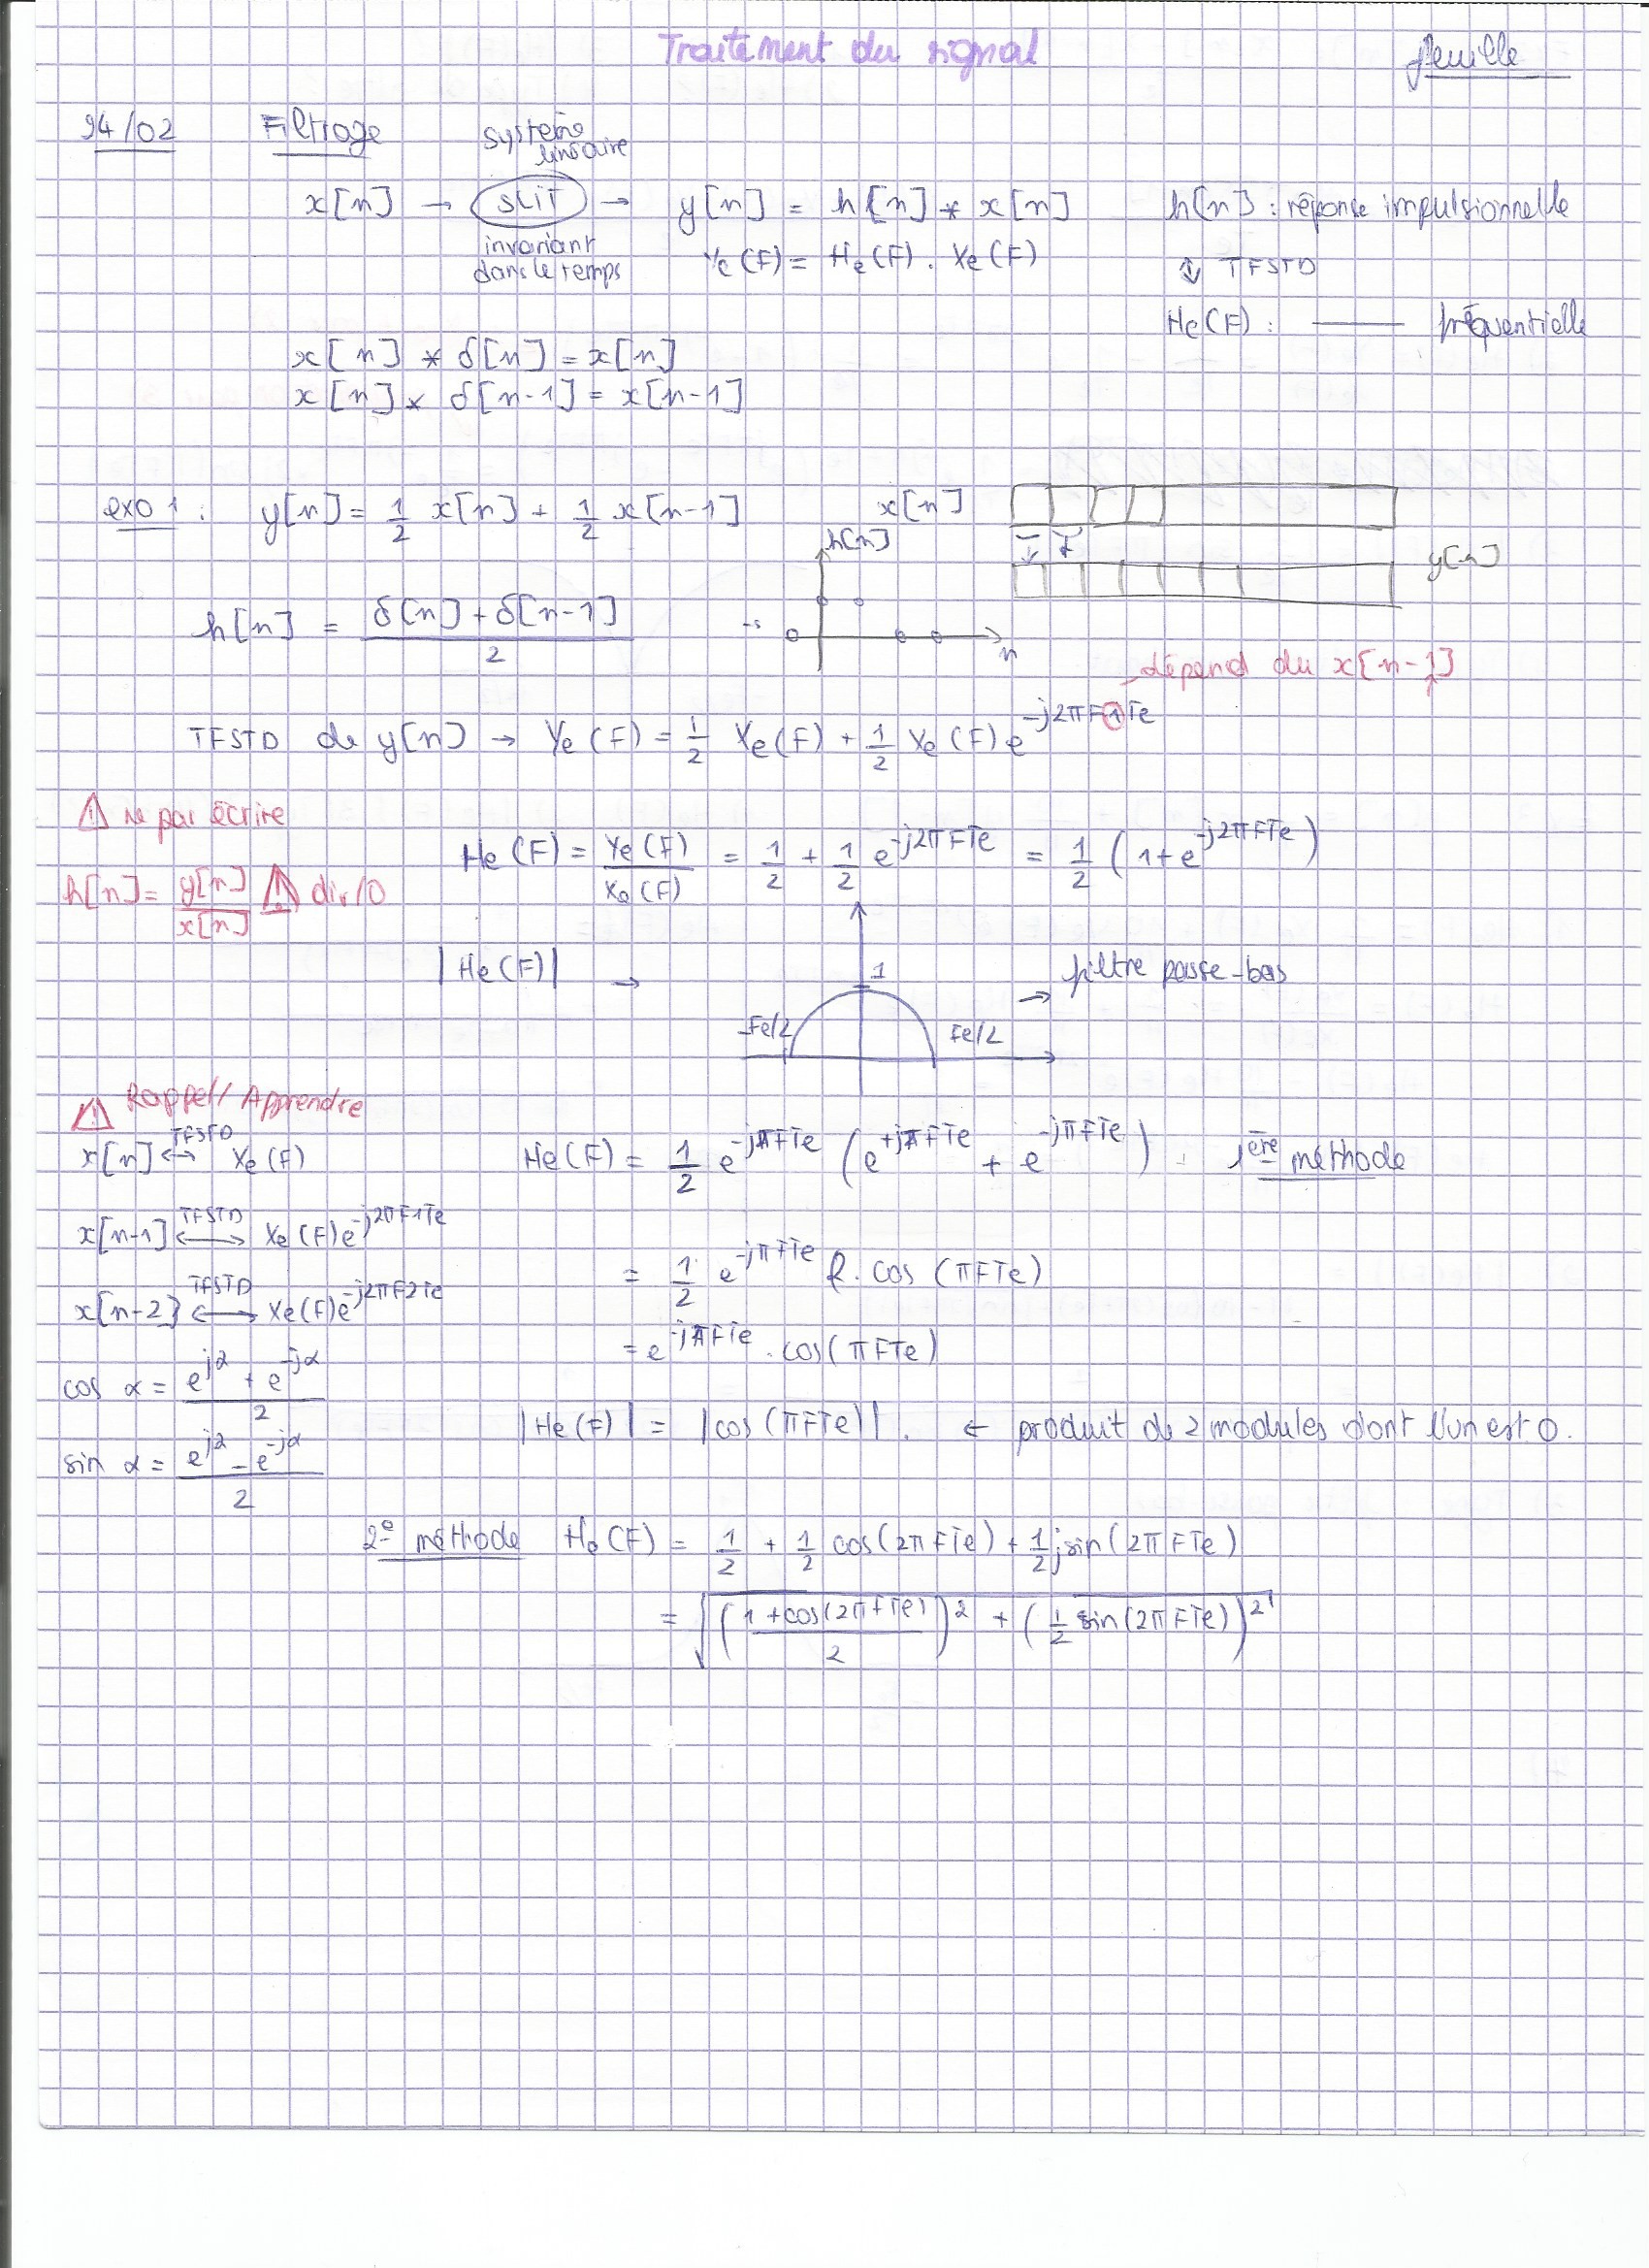 Traitement du signal
feuille
94/02 Filtrage
système linéaire
x[n] → SLIT → y[n] = h[n] * x[n]
h[n] : réponse impulsionnelle
invariant dans le temps
Ye(F) = He(F) . Xe(F)
⇕ TFSTD
He(F) : ——— fréquentielle
x[n] * δ[n] = x[n]
x[n] * δ[n-1] = x[n-1]
exo 1 : y[n] = 1/2 x[n] + 1/2 x[n-1]
x[n]
h[n]
y[n]
h[n] = (δ[n] + δ[n-1])/2
n
dépend du x[n-1]
TFSTD de y[n] → Ye(F) = 1/2 Xe(F) + 1/2 Xe(F) e^-j2πF1Te
⚠ Ne pas écrire
h[n] = y[n]/x[n] ⚠ div/0
He(F) = Ye(F)/Xe(F) = 1/2 + 1/2 e^-j2πFTe = 1/2 (1+e^-j2πFTe)
|He(F)| →
1
-Fe/2
Fe/2
→ filtre passe-bas
⚠ Rappel/Apprendre
x[n] <-TFSTD-> Xe(F)
x[n-1] <-TFSTD-> Xe(F)e^-j2πF1Te
x[n-2] <-TFSTD-> Xe(F)e^-j2πF2Te
cos α = (e^jα + e^-jα)/2
sin α = (e^jα - e^-jα)/2
He(F) = 1/2 e^-jπFTe (e^+jπFTe + e^-jπFTe) . 1ère méthode
= 1/2 e^-jπFTe 2. cos (πFTe)
= e^-jπFTe . cos(πFTe)
|He(F)| = |cos(πFTe)|. ← produit de 2 modules dont l'un est 0.
2e méthode He(F) = 1/2 + 1/2 cos(2πFTe) + 1/2 j sin(2πFTe)
= √(((1+cos(2πFTe))/2)² + (1/2 sin(2πFTe))²)